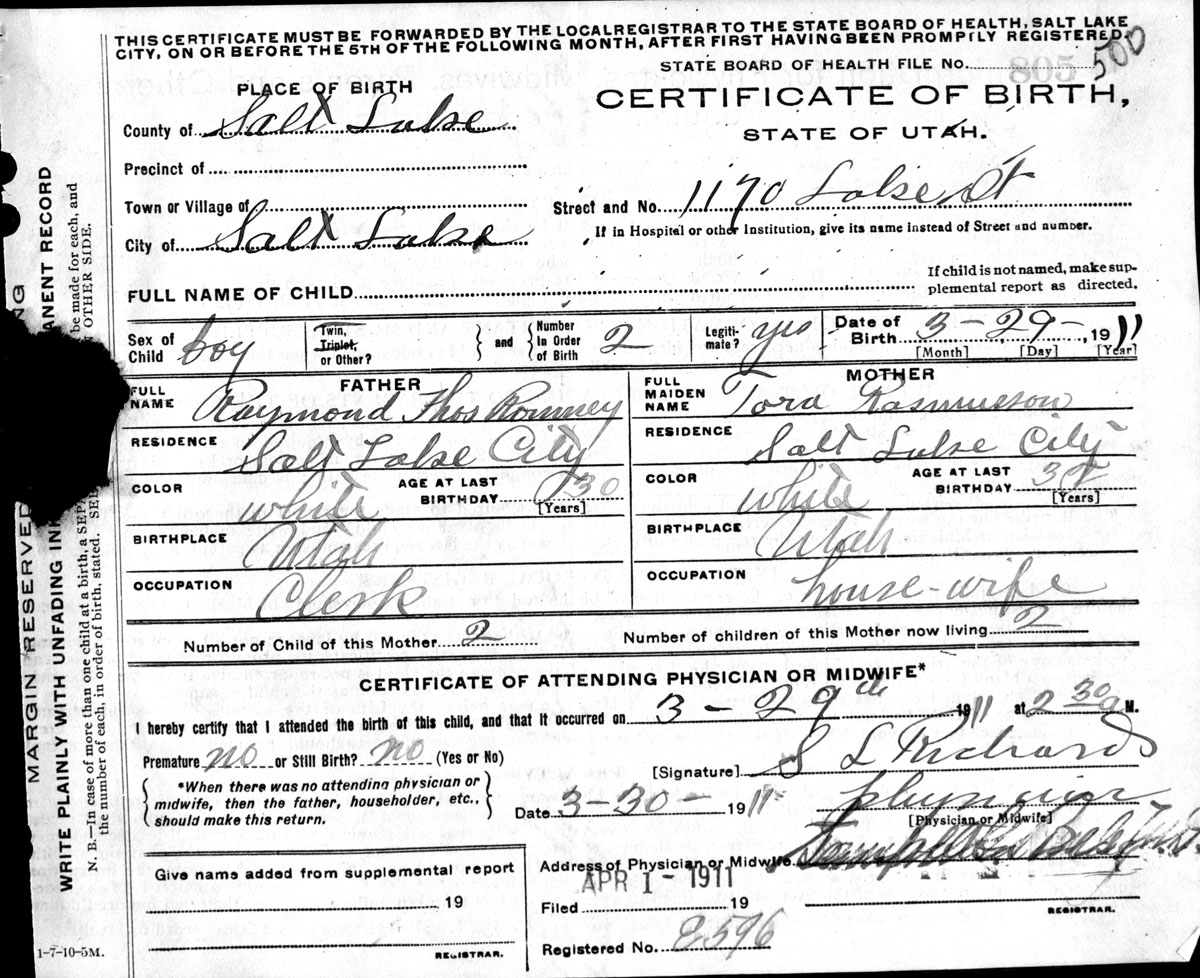 THIS CERTIFICATE MUST BE FORWARDED BY THE LOCAL REGISTRAR TO THE STATE BOARD OF HEALTH, SALT LAKE
CITY, ON OR BEFORE THE 5TH OF THE FOLLOWING MONTH, AFTER FIRST HAVING BEEN PROMPTLY REGISTERED.
STATE BOARD OF HEALTH FILE NO. 805 500
PLACE OF BIRTH
CERTIFICATE OF BIRTH,
STATE OF UTAH.
County of Salt Lake
Precinct of
Town or Village of
Street and No. 1170 Lake St
City of Salt Lake
If in Hospital or other Institution, give its name instead of Street and number.
FULL NAME OF CHILD
If child is not named, make sup-
plemental report as directed.
Sex of Child boy
Twin, Triplet, or Other?
and
Number In Order of Birth 2
Legiti-mate? yes
Date of Birth 3-29-, 1911
[Month] [Day] [Year]
FATHER
FULL NAME Raymond Thos Romney
RESIDENCE Salt Lake City
COLOR white
AGE AT LAST BIRTHDAY 30
[Years]
BIRTHPLACE Utah
OCCUPATION Clerk
MOTHER
FULL MAIDEN NAME Tora Rasmusson
RESIDENCE Salt Lake City
COLOR white
AGE AT LAST BIRTHDAY
[Years]
BIRTHPLACE Utah
OCCUPATION house-wife
Number of Child of this Mother 2
Number of children of this Mother now living 2
CERTIFICATE OF ATTENDING PHYSICIAN OR MIDWIFE*
I hereby certify that I attended the birth of this child, and that it occurred on 3-29th 1911 at 2 30 a M.
Premature no or Still Birth? no (Yes or No)
[Signature] S L Richards
*When there was no attending physician or
midwife, then the father, householder, etc.,
should make this return.
Date 3-30- 1911
physician
[Physician or Midwife]
Address of Physician or Midwife
Give name added from supplemental report
19
REGISTRAR.
APR 1 - 1911
Filed 19
REGISTRAR.
Registered No. 8596
1-7-10-5M.
MARGIN RESERVED
NG
WRITE PLAINLY WITH UNFADING IN
ANENT RECORD
N. B.—In case of more than one child at a birth, a SEP
be made for each, and
the number of each, in order of birth, stated. SE
OTHER SIDE.